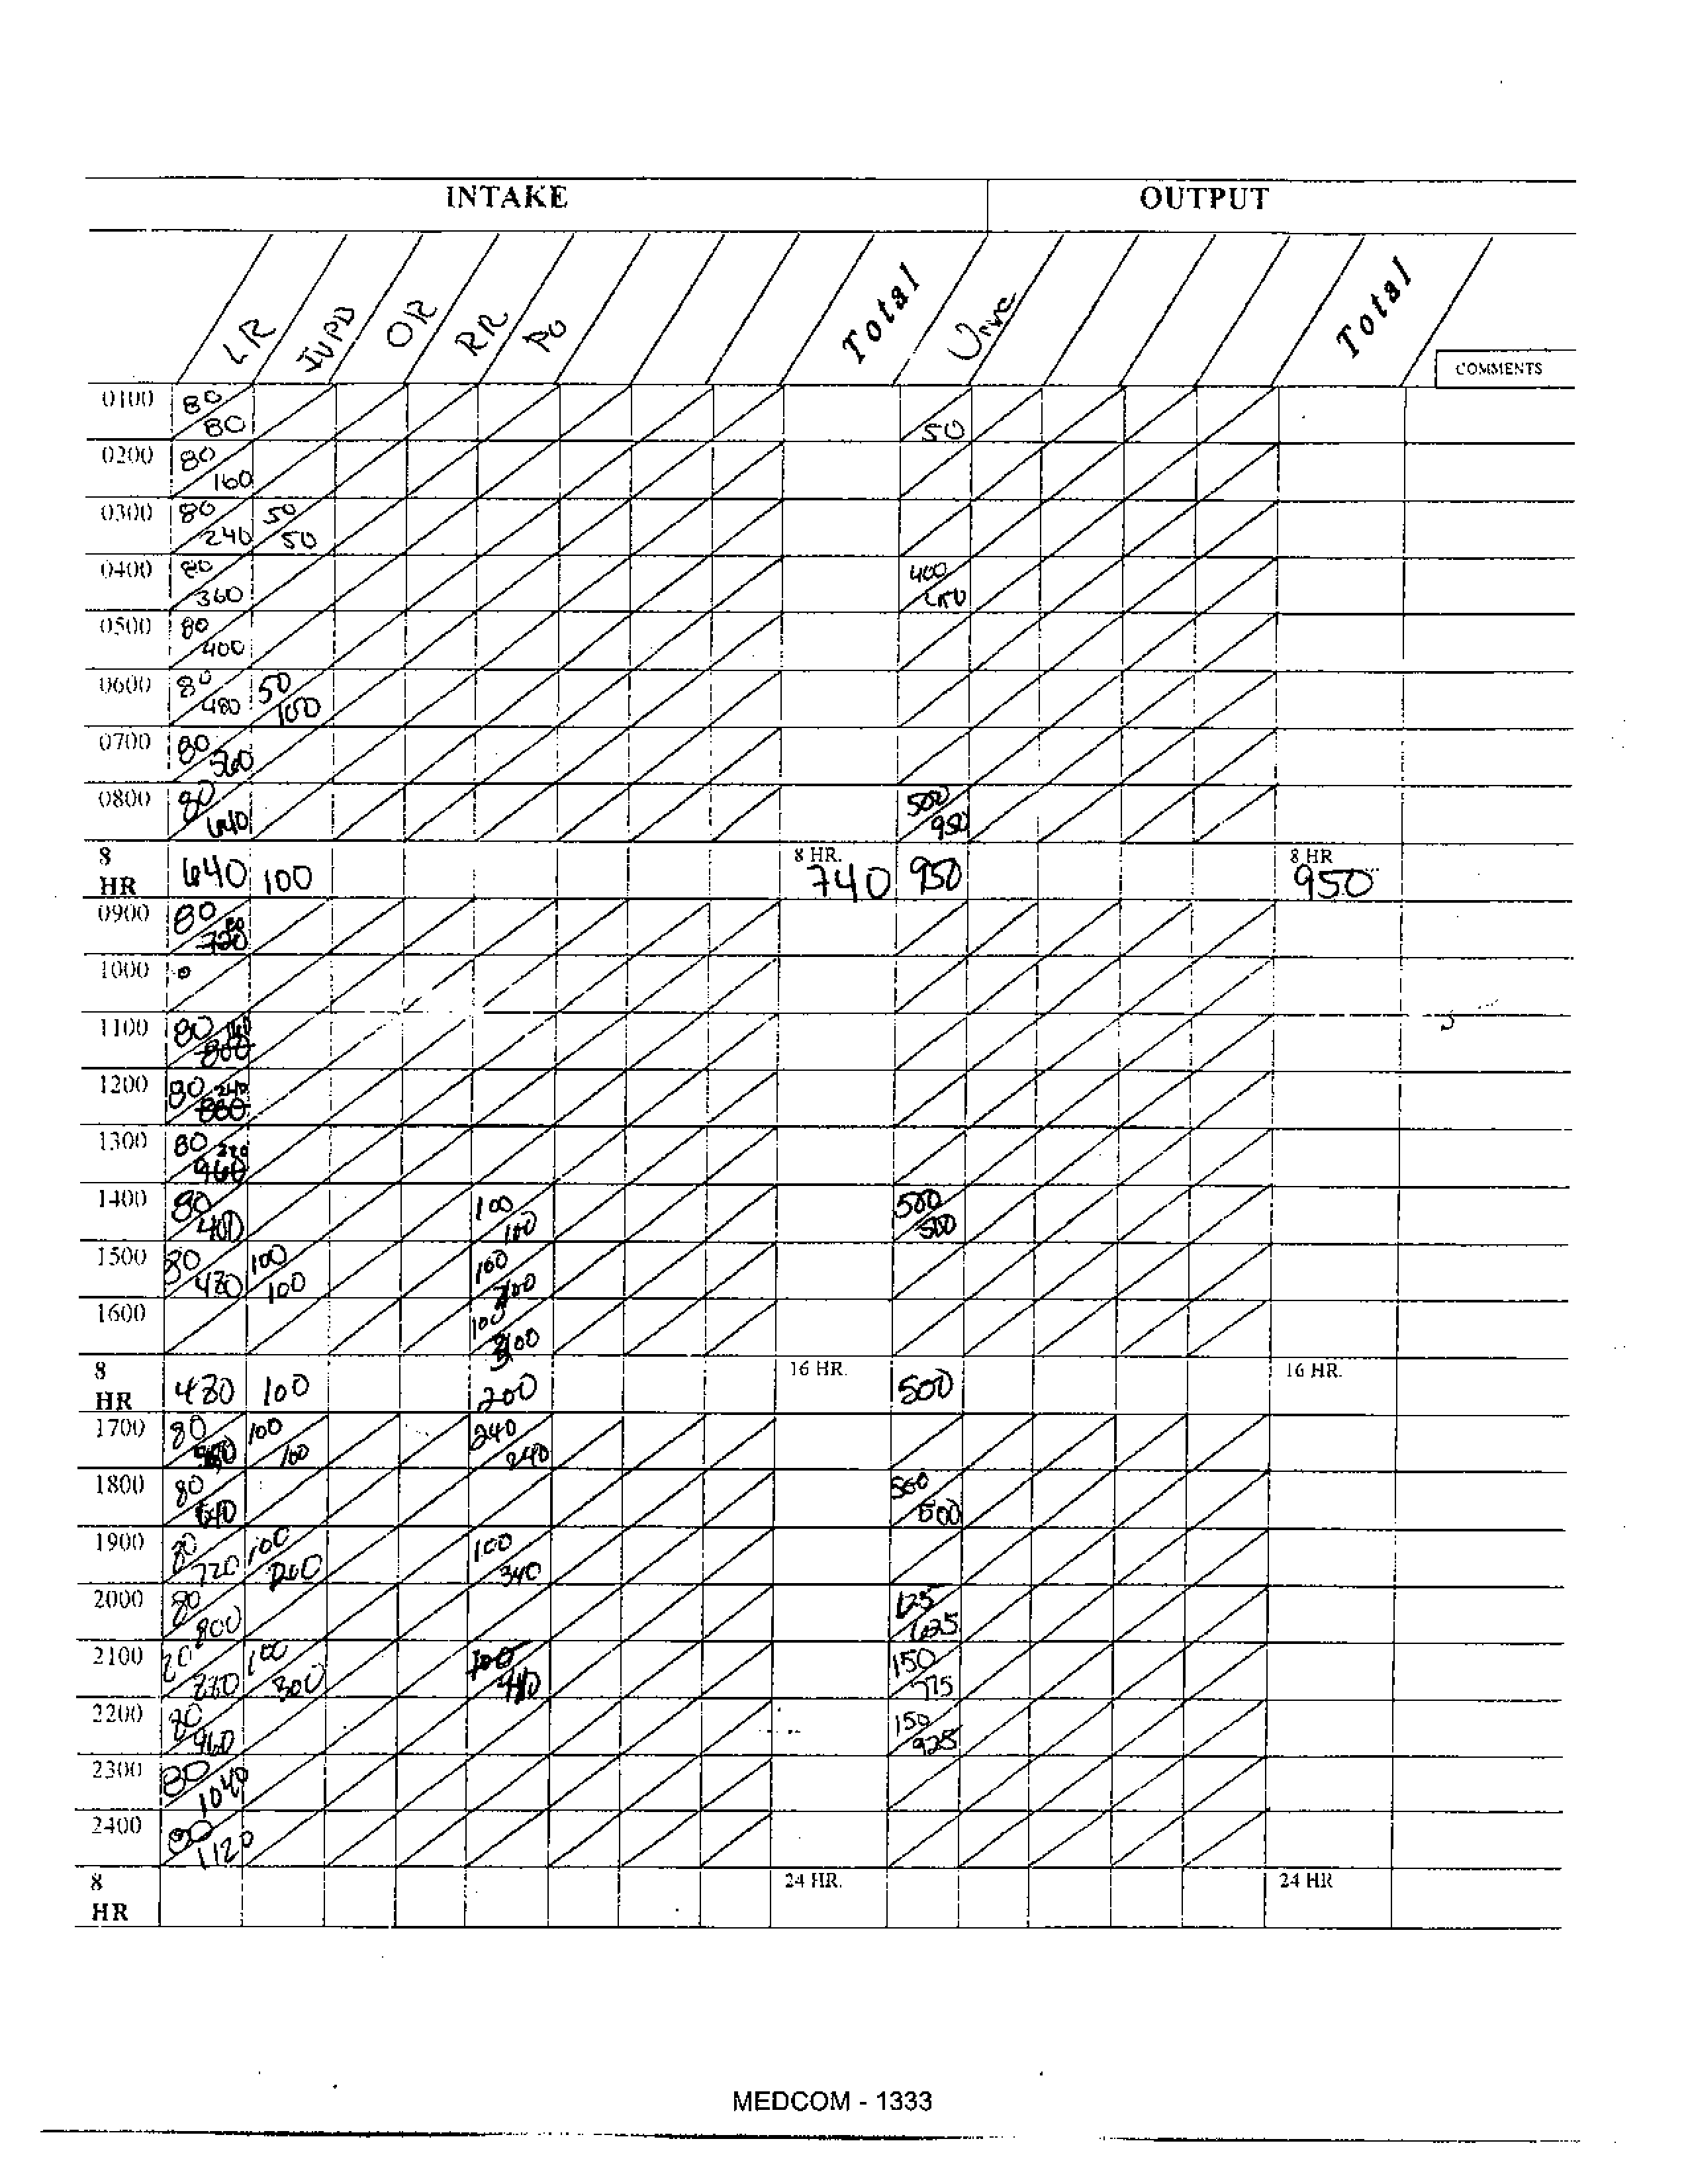 INTAKE OUTPUT
LR IVPD OR RR PO Total Urine Total
COMMENTS
0100 80
80 50
0200 80
160
0300 80 50
240 50
0400 80 400
360 450
0500 80
400
0600 80 50
480 100
0700 80
560
0800 80 500
640 950
8 8 HR. 8 HR
HR 640 100 740 950 950
0900 80 80
720
1000 0
1100 80 160
800
1200 80 240
880
1300 80 320
960
1400 80 100 500
400 100 500
1500 80 100 100
480 100 200
1600 100
300
8 16 HR. 16 HR.
HR 480 100 200 500
1700 80 100 240
100 240
1800 80 500
640 500
1900 80 100 100
720 200 340
2000 80 125
800 625
2100 80 100 100
880 300 440 150
775
2200 80 150
960 925
2300 80
1040
2400 80
1120
8 24 HR. 24 HR
HR
MEDCOM - 1333